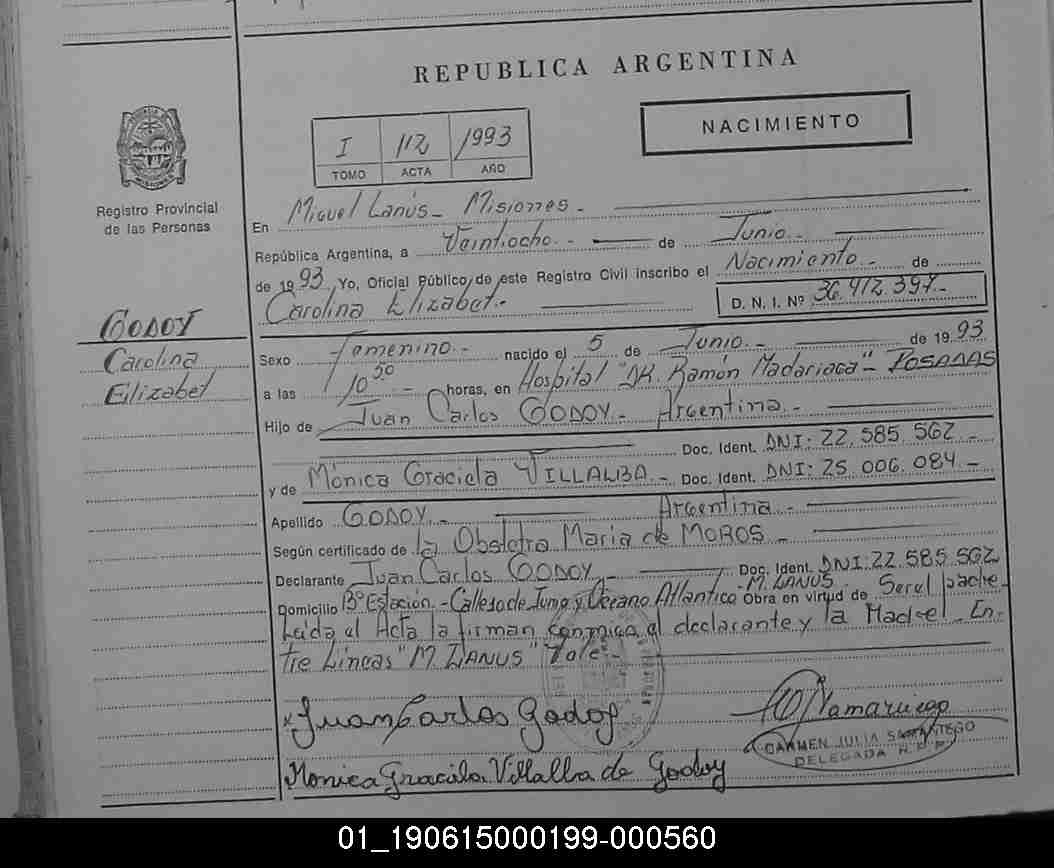 REPUBLICA ARGENTINA
NACIMIENTO
I 112 1993
TOMO ACTA AÑO
Registro Provincial
de las Personas
En Miguel Lanús - Misiones -
República Argentina, a Veintiocho - de Junio -
de 1993 Yo, Oficial Público de este Registro Civil inscribo el Nacimiento - de
Carolina Elizabet - D. N. I. Nº 36.412.397 -
GODOY
Carolina
Elizabet
Sexo Femenino - nacido el 5 de Junio - de 1993
a las 10 30 - horas, en Hospital "DR. Ramón Madariaga" - POSADAS
Hijo de Juan Carlos GODOY - Argentina -
Doc. Ident. DNI: 22.585.562 -
y de Mónica Graciela VILLALBA - Doc. Ident. DNI: 25.006.084 -
Apellido GODOY - Argentina -
Según certificado de la Obstetra Maria de MOROS -
Declarante Juan Carlos GODOY - Doc. Ident. DNI: 22.585.562
- M. LANUS -
Domicilio Bº Estación - Calleso de Jump y Océano Atlantico Obra en virtud de Ser el padre -
Leida el Acta la firman conmigo el declarante y la Madre - En-
tre Lineas "M. LANUS" Vale -
x Juan Carlos Godoy
CARMEN JULIA SAMANIEGO
DELEGADA R. P. P.
Monica Graciela Villalba de Godoy
01_190615000199-000560